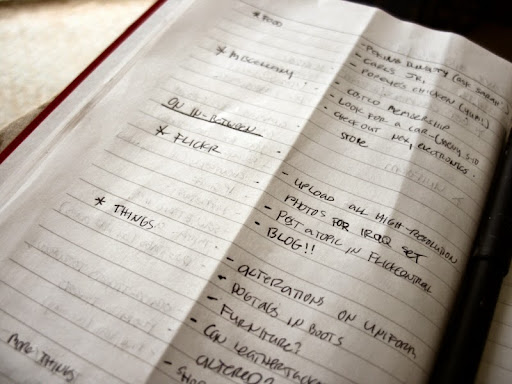 * FOOD
- PANDA DYNASTY (ASK SARAH)
- CARL'S JR.
- POPEYE'S CHICKEN (YUM!)
* MISCELLANY
- COSTCO MEMBERSHIP
- LOOK FOR A CAR
- CHECK OUT NEX, ELECTRONICS
STORE
ON IN-BETWEEN
* FLICKR
- UPLOAD ALL HIGH RESOLUTION
PHOTOS FOR IRAQ SET
- POST A TOPIC IN FLICKRCENTRAL
- BLOG!!
* THINGS
- ALTERATIONS ON UNIFORM
- DOGTAGS IN BOOTS
- FURNITURE?
- CAN LEATHERJACKET
ALTERED?
MORE THINGS